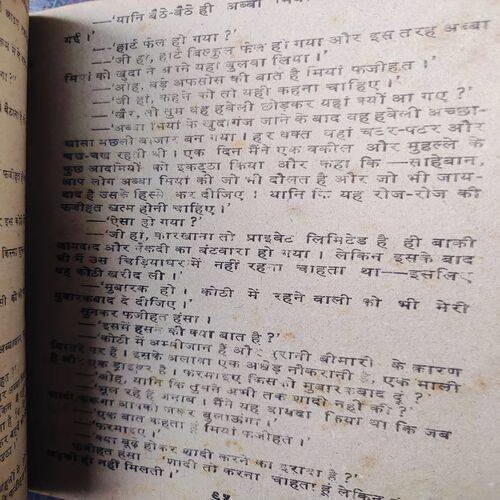 —'यानि बैठे-बैठे ही अब्बा मियां
गई ।'
—'हार्ट फेल हो गया ?'
—'जी हां, हार्ट बिल्कुल फेल हो गया और इस तरह अब्बा
मियां को खुदा ने अपने यहां बुलवा लिया ।'
—'ओह, बड़े अफसोस की बात है मियां फजीहत ।'
—'जी हां, कहने को तो यही कहना चाहिए ।'
—'खैर, तो तुम वह हवेली छोड़कर यहां क्यों आ गए ?'
—'अब्बा मियां के खुदागंज जाने के बाद वह हवेली अच्छा-
खासा मछली बाजार बन गया । हर वक्त वहां चटर-पटर और
चख-चख रहती थी । एक दिन मैंने एक वकील और मुहल्ले के
कुछ आदमियों को इकट्ठा किया और कहा कि—साहेबान,
आप लोग अब्बा मियां की जो भी दौलत है और जो भी जाय-
दाद है उसके हिस्से कर दीजिए । यानि कि यह रोज-रोज की
फजीहत खत्म होनी चाहिए ।'
—'ऐसा हो गया ?'
—'जी हां, कारखाना तो प्राइवेट लिमिटेड है ही बाकी
जायदाद और नकदी का बंटवारा हो गया । लेकिन इसके बाद
भी मैं उस चिड़ियाघर में नहीं रहना चाहता था—इसलिए
यह कोठी खरीद ली ।'
—'मुबारक हो । कोठी में रहने वाली को भी मेरी
मुबारकबाद दे दीजिए ।'
सुनकर फजीहत हंसा ।
—'इसमें हंसने की क्या बात है ?'
—'कोठी में अम्बीजान हैं और पुरानी बीमारी के कारण
बिस्तर पर हैं । इसके अलावा एक अधेड़ नौकरानी है, एक माली
है और एक ड्राइवर है । फरमाइए किसको मुबारकबाद दूं ?'
—'ओह, यानि कि तुमने अभी तक शादी नहीं की ?'
—'भूल रहे हैं जनाब । मैंने यह वायदा किया था कि जब
शादी करूंगा आपको जरूर बुलाऊंगा ।'
—'एक बात कहूं मियां फजीहत ।'
—'फरमाइए ।'
—'क्या बूढ़े होकर शादी करने का इरादा है ?'
फजीहत हंसा—'शादी तो करना चाहता हूं लेकिन
लड़की ही नहीं मिलती ।'
६५